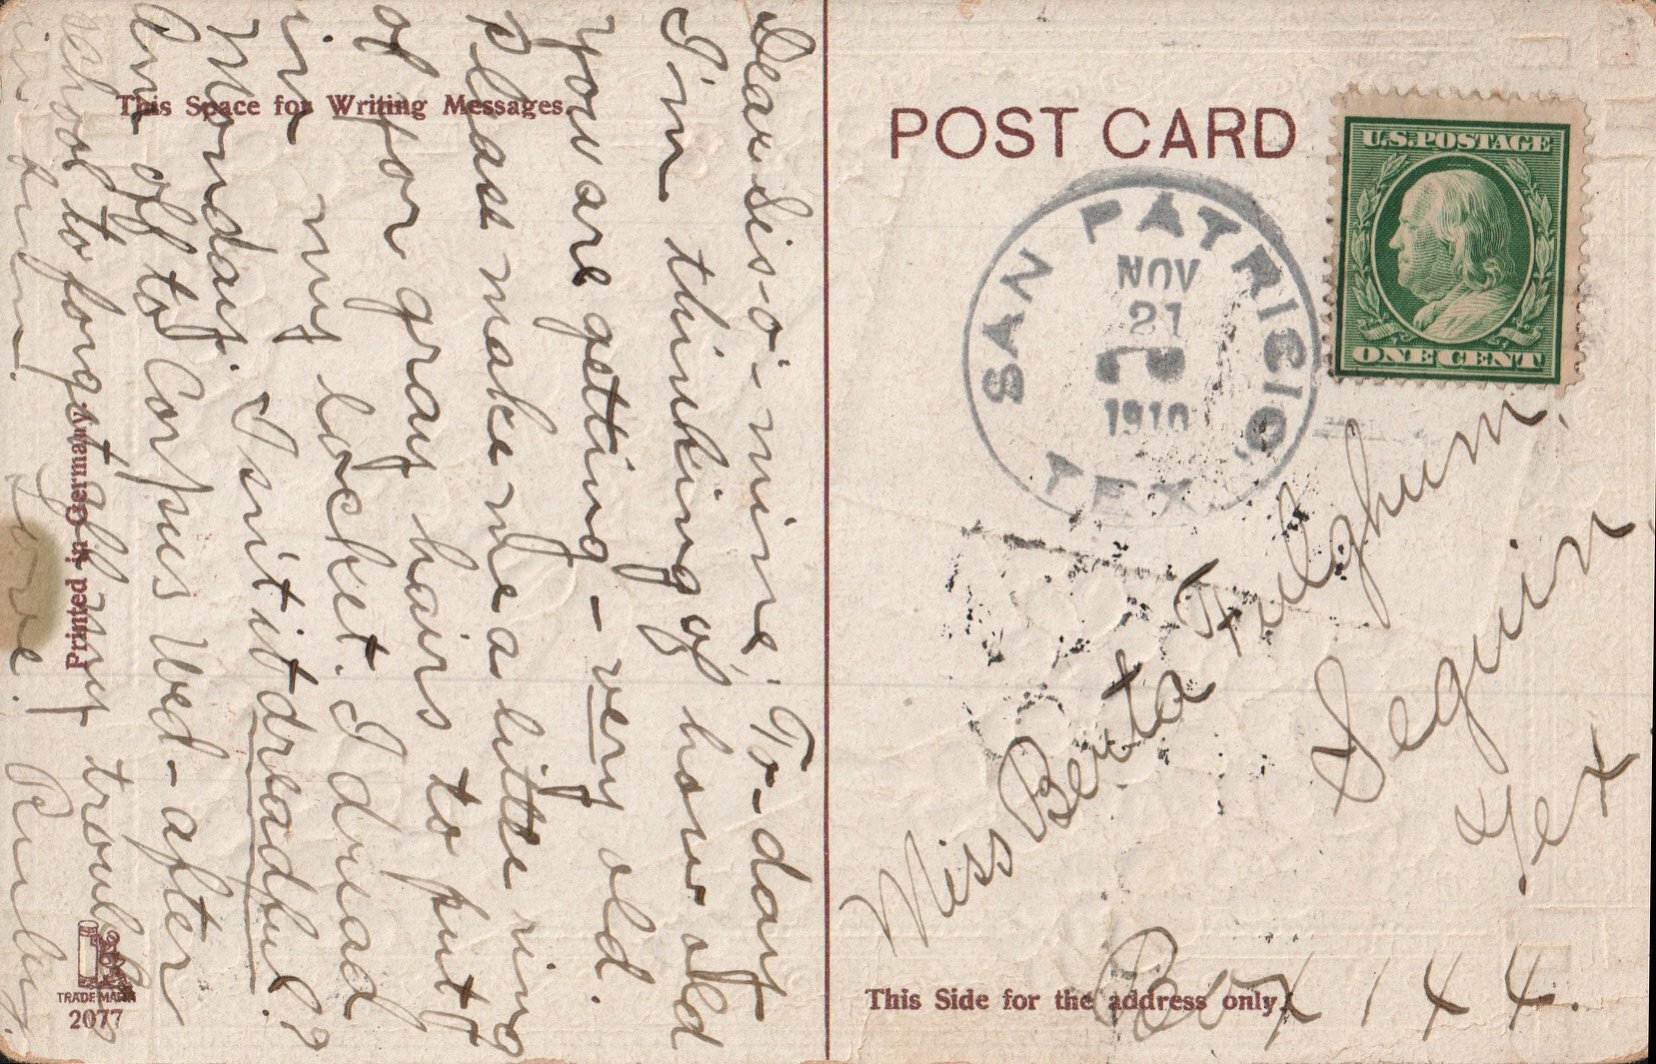 This Space for Writing Messages.
Dear Sis o' mine; To-day
I'm thinking of how old
you are getting - very old.
Please make me a little ring
of for gray hairs to put
in my locket. I dread
Monday. Isn't it dreadful??
Am off to Corpus Wed- after
school to forget all my troubles
in Love. Ruby.
Printed in Germany
TRADE MARK
2077
POST CARD
U.S. POSTAGE
ONE CENT
SAN PATRICIO,
NOV
21
1910
TEX.
Miss Berta Fulghum,
Seguin,
Tex.
Box 144.
This Side for the address only.